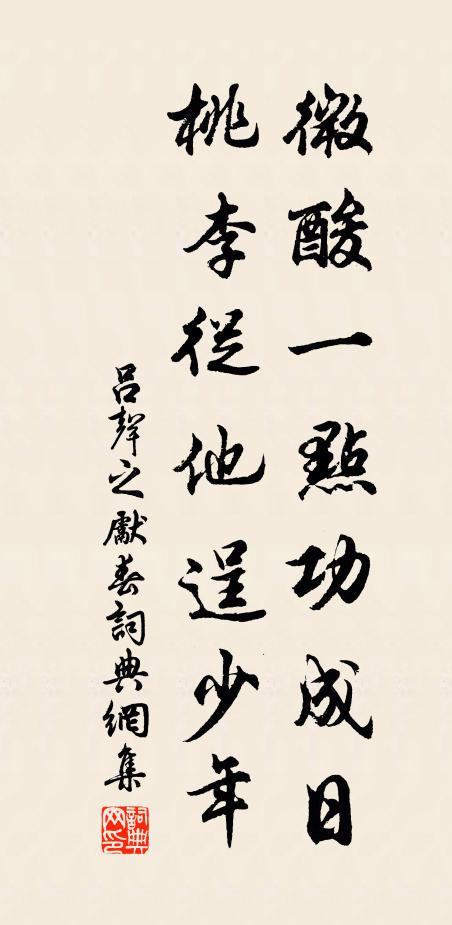 微酸一點功成日
桃李從他逞少年
呂聲之獻春詞典網集
詞典網印